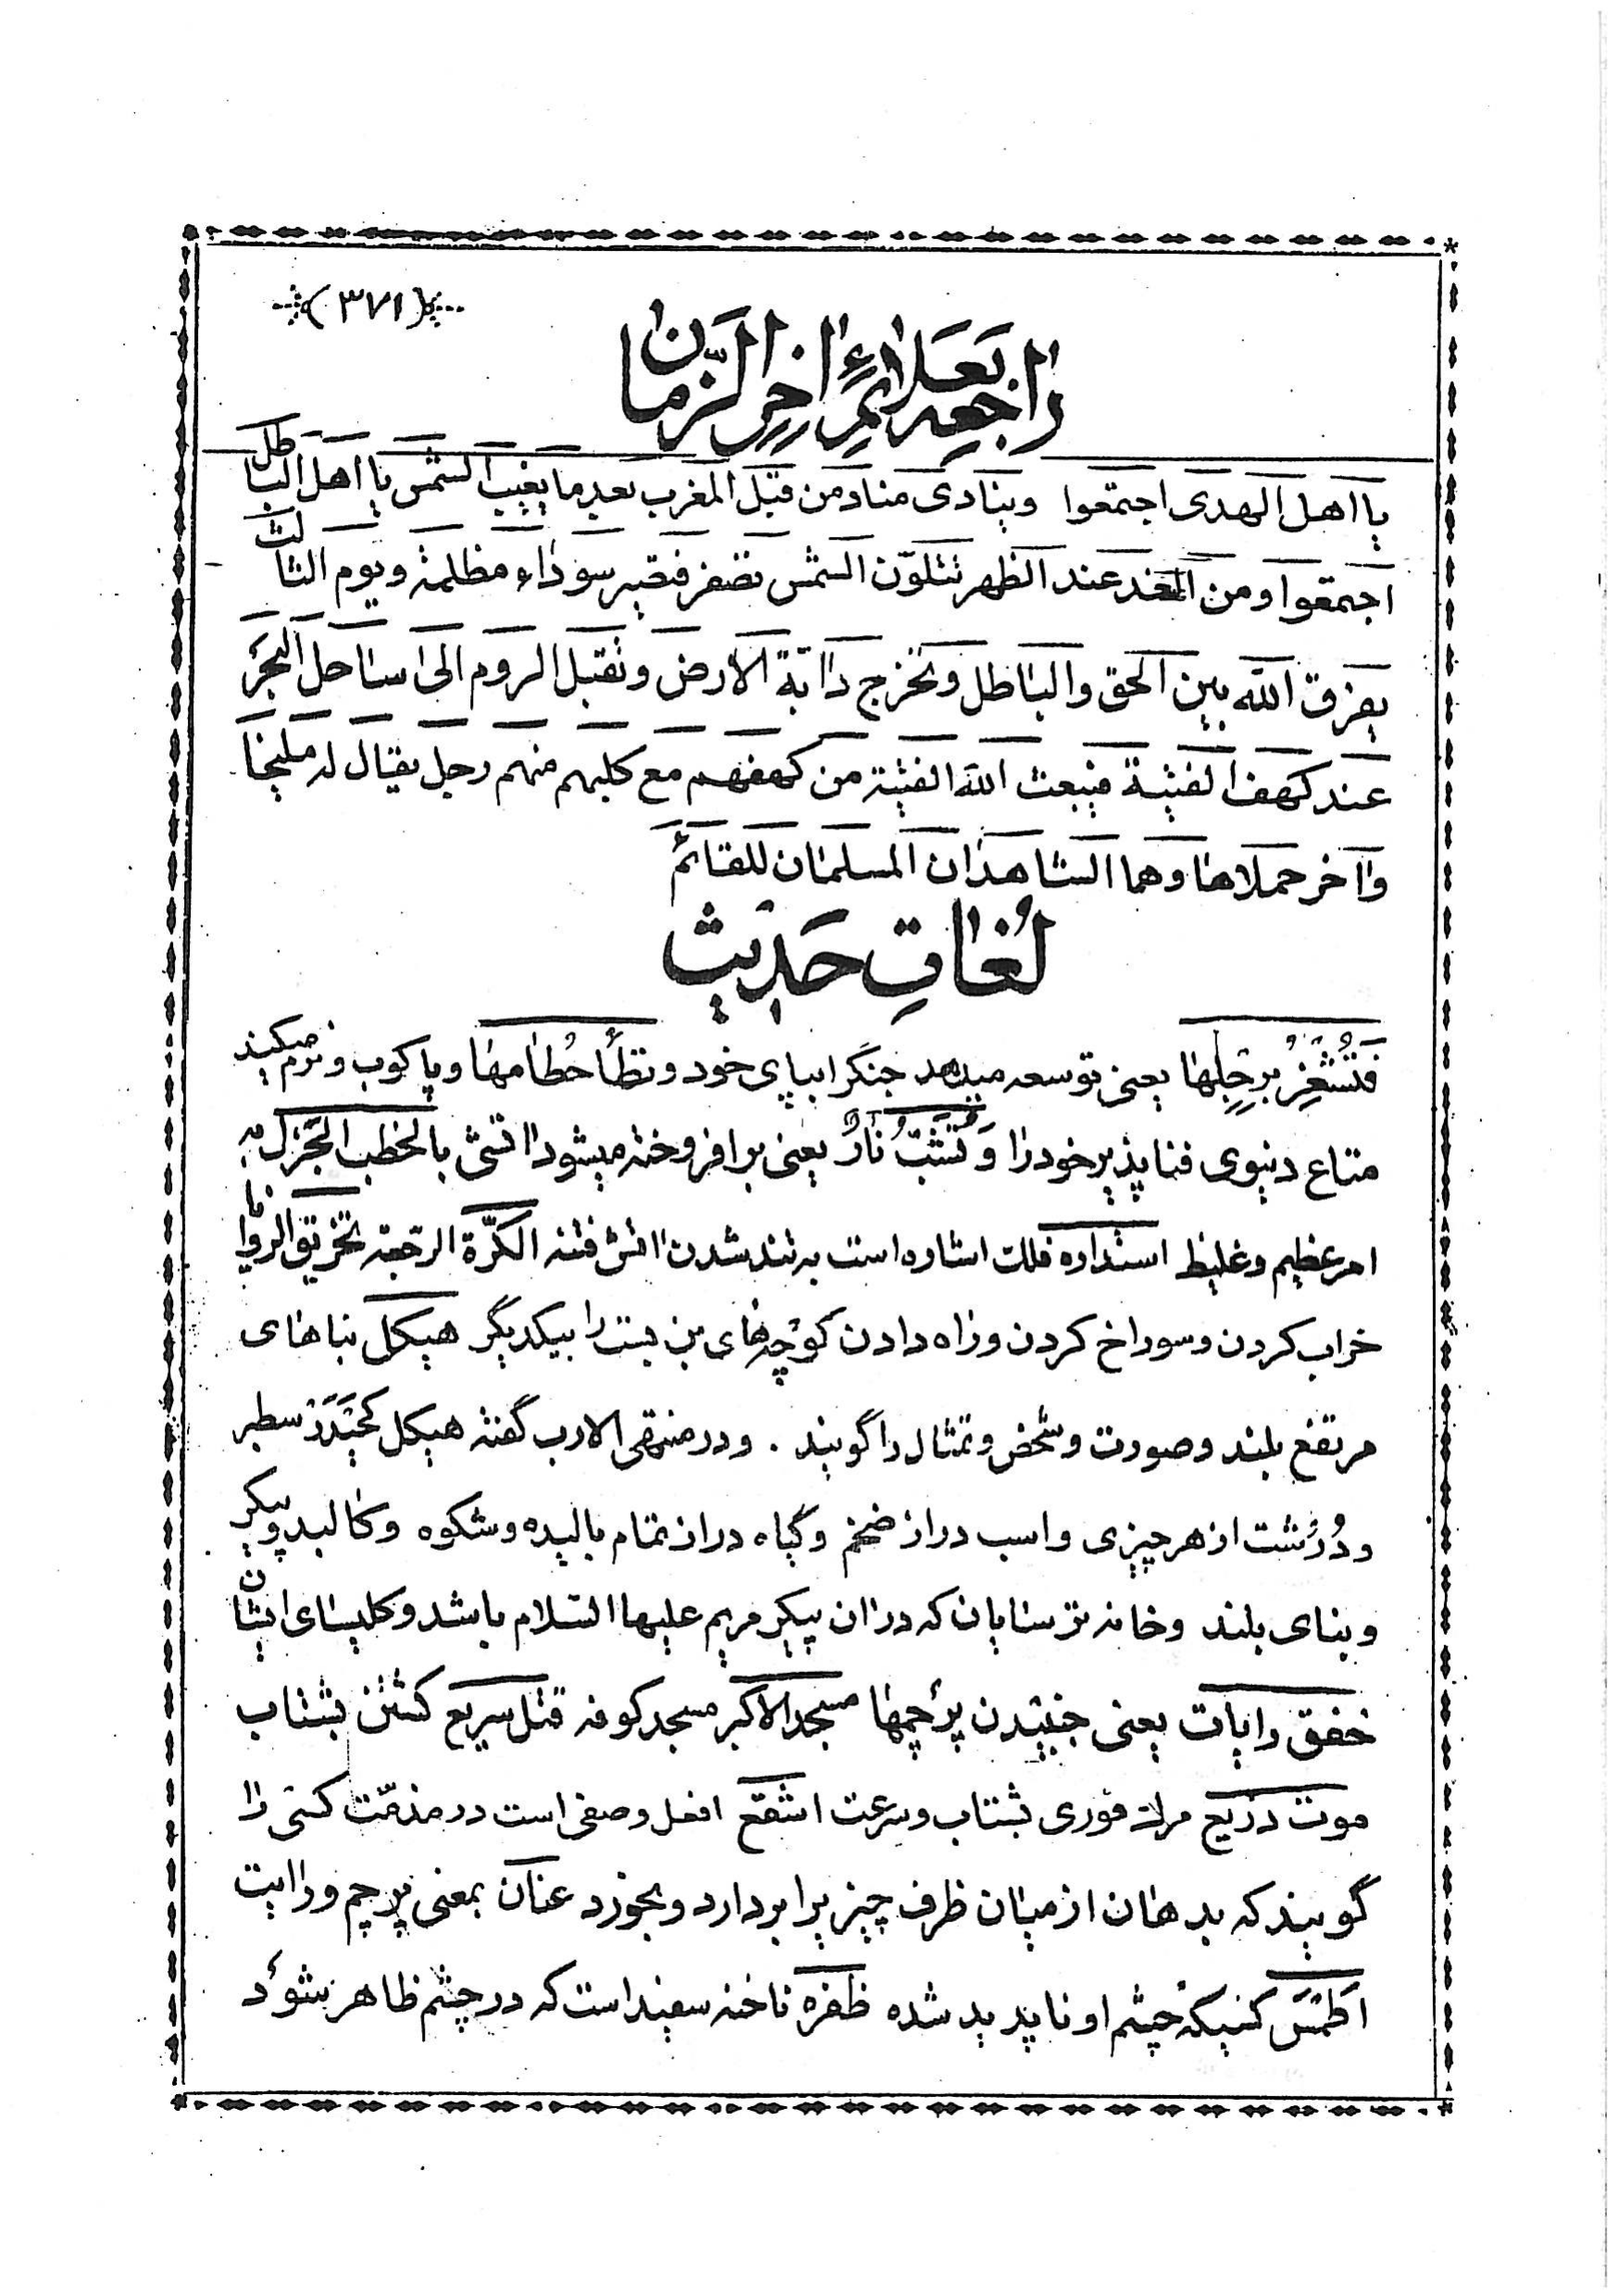 (۳۷۱)
راجعه بعلائم اخر الزمان
یا اهل الهدی اجتمعوا وینادی مناد من قبل المغرب بعد ما یغیب الشمس یا اهل الباطل
اجتمعوا ومن الغد عند الظهر تتلوّن الشمس تصفر فتصیر سوداء مظلمة ویوم الثالث
یفرق الله بین الحق والباطل وتخرج دابة الارض وتقبل الروم الی ساحل البحر
عند کهف الفتیة فیبعث الله الفتیة من کهفهم مع کلبهم منهم رجل یقال له ملیخا
واخر حملاها وهما الشاهدان المسلمان للقائم
لُغاتِ حَدیث
فَتُشْغِرُ بِرِجِلِها یعنی توسعه میدهد جنگرا بپای خود وتطأ حُطامها و پا کوب و نرم میکند
متاع دنیوی فناپذیر خود را وَتُشَبُّ نارٌ یعنی برافروخته میشود اتشی بالحطب الجَزل به
امر عظیم و غلیظ استداره فلک اشاره است به تند شدن اتش فتنه الکَرّة الرجعة تخریق الزوایا
خراب کردن و سوراخ کردن و راه دادن کوچه‌های بن بست را بیکدیگر هیکل بناهای
مرتفع بلند و صورت و شخص و تمثال را گویند . و در منتهی الارب گفته هیکل کحَیدَر سطبر
و دُرُشت از هر چیزی و اسب دراز ضخم و گیاه دراز تمام بالیده و شکوه و کالبد و پیکر
و بنای بلند و خانه ترسایان که در ان پیکر مریم علیها السّلام باشد و کلیسای ایشان
خفق رایات یعنی جنبیدن پرچمها مسجد الاکبر مسجد کوفه قتل سریع کشتن بشتاب
موت ذریع مرک فوری بشتاب و سرعت اشقع افعل وصفی است در مذمّت کسی را
گویند که بدهان از میان ظرف چیزیرا بردارد و بخورد عنان بمعنی پرچم و رایت
اطمَس کسیکه چشم او ناپدید شده ظفره ناخنه سفید است که در چشم ظاهر شود